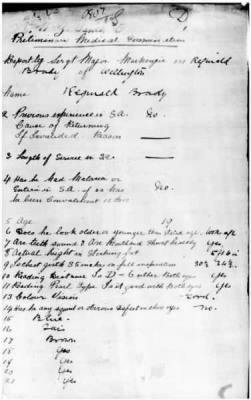 Preliminary Medical Examination
Report by Sergt Major Mackenzie on Reginald
Brady of Wellington
Name Reginald Brady
2 Previous experience in S.A. No.
Cause of Returning
If Invalided. Reason —
3 Length of Service in SA —
4 Has he had Malaria or
Enteric in S.A. if so has
he been Convalescent
No.
5 Age 19
6 Does he look older or younger than stated age
7 Are teeth sound & Are Yes
8 Actual height in Stocking feet 5ft 4 in
9 34½
10 Reading distance in D - C other Both eyes Yes
11 Reading Pearl Type Is it good with both eyes Yes
13 Colour Vision Good.
14 Has he any squint or obvious defect in his eyes No.
15 Blue
16 Fair
17 Brown
18 Yes
19 Yes
20 Yes
21 Yes